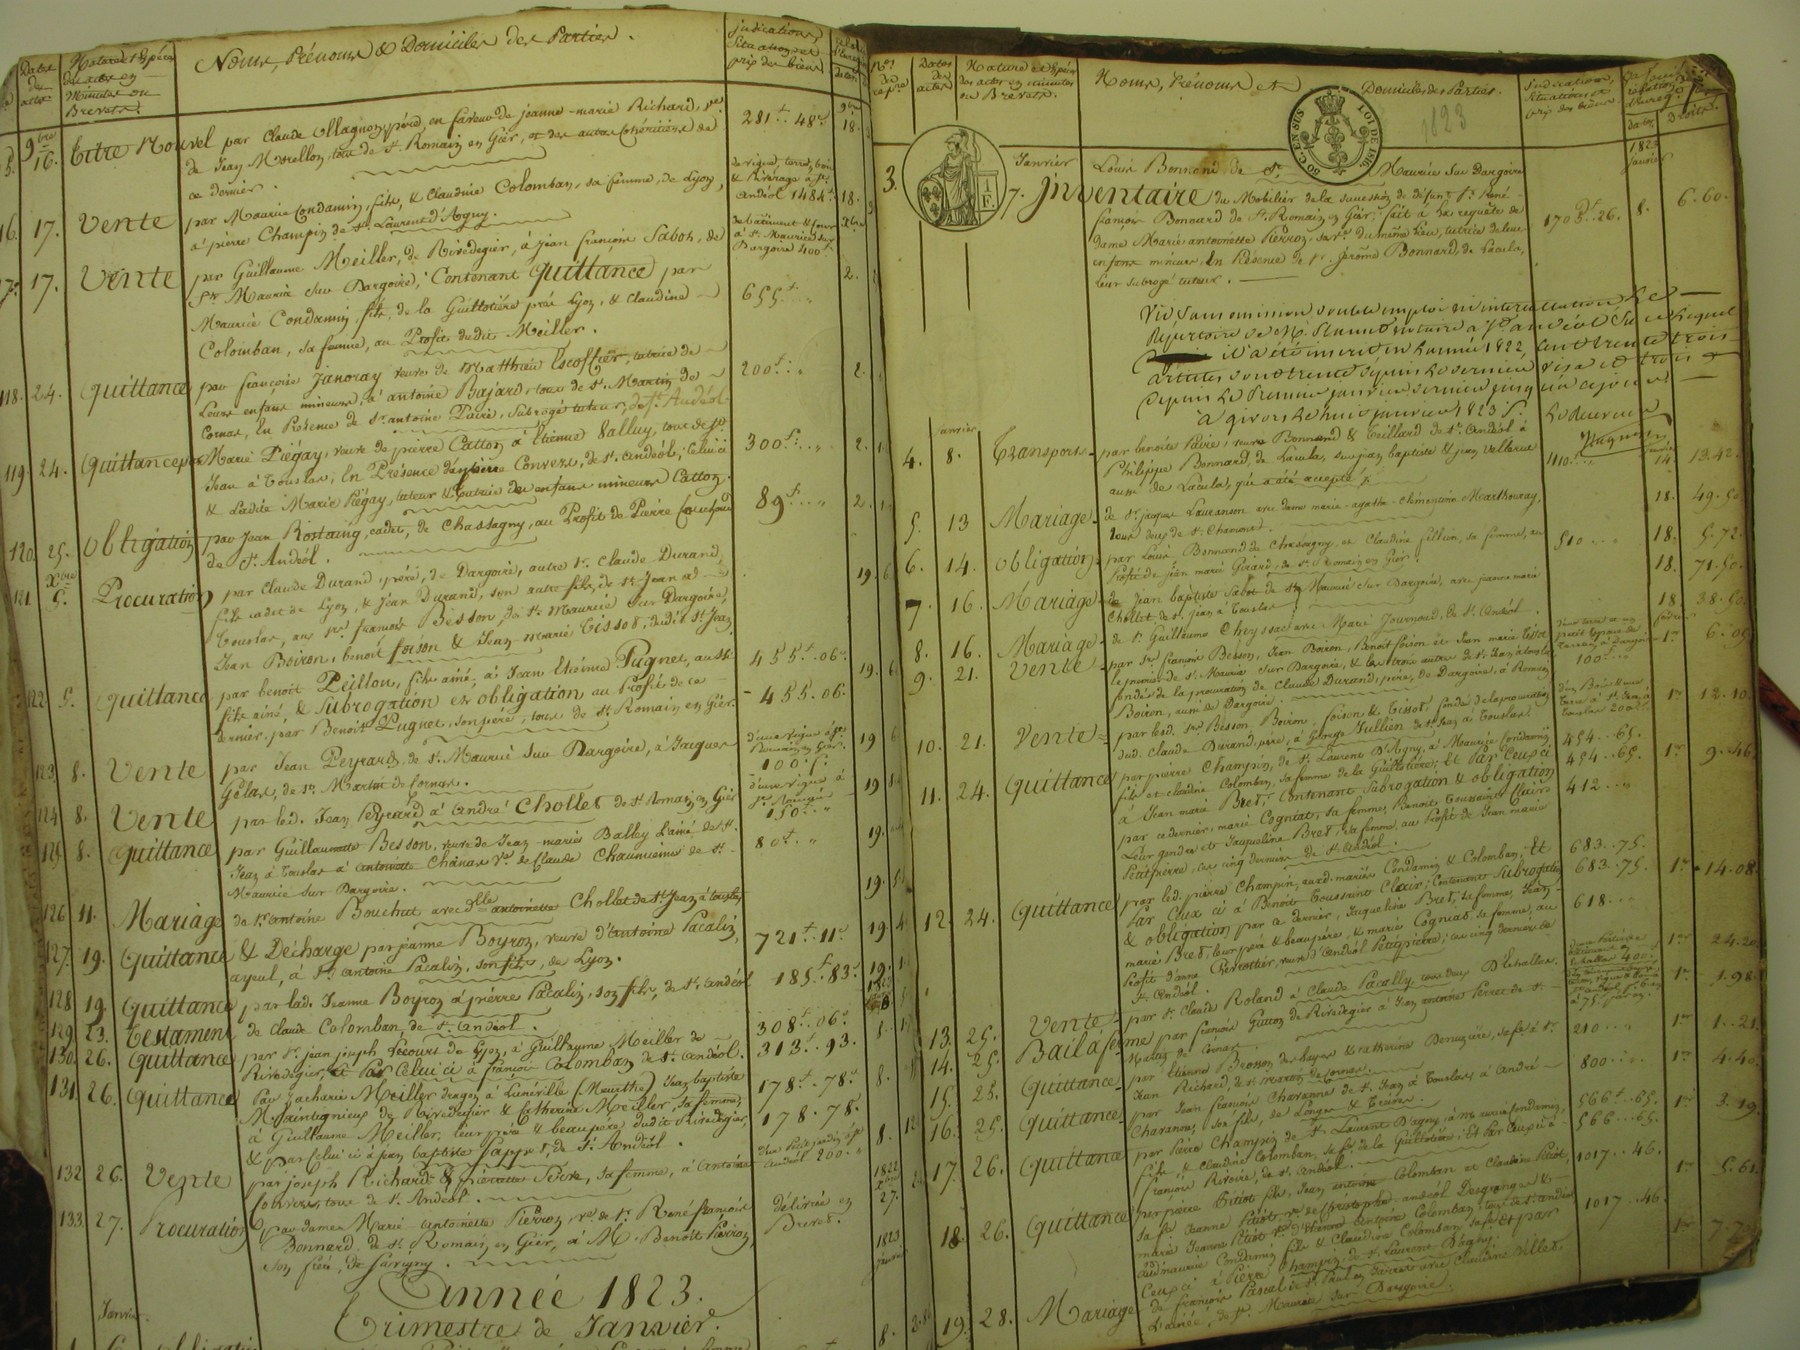 Dates du actes
Nature & Espèce des actes en Minutes ou Brevets.
Noms, Prénoms & Domiciles des Parties.
Indications, Situations et prix des biens
9bre
16. Titre Nouvel par Claude Magnon, père en faveur de jeanne-marie Richard, ve
de Jean Mrellon, tous de St. Romain en Gier, et des autres Cohéritiers de
ce dernier.
281# 48c
18.
16. 17. Vente par Maurice Condamin, fils, & Claudine Colomban, sa femme, de Lyon,
à pierre Champin de St. Laurent d'Agny.
18.
17. 17. Vente par Guillaume Meiller, de Rivedegier, à jean françois Sabot, de
St Maurice sur Dargoire; Contenant Quittance par
Maurice Condamin fils, de la Guillotière près Lyon, & Claudine
Colomban, sa femme, au Profit dudit Meiller.
655#
2.
118. 24. Quittance par françoise Janoray veuve de Matthieu Escoffier, tutrice de
Leurs enfans mineurs, à antoine Bajard, tous de St. Martin de
Cornas, En Présence de Sr. antoine Pairé, Subrogé tuteur, de St. Andéol.
200#
2.
119. 24. Quittance par Marie Piégay, veuve de pierre Catton à Etienne Valluy, tous de St.
Jean à Touslas, En Présence de pierre Convers, de St. andéol; Celui ci
& Ladite Marie Piégay, tuteur & tutrice des enfans mineurs Catton.
300#
2.
120. 25. Obligation par Jean Rostaing, cadet, de Chassagny, au Profit de Pierre
de St. Andéol.
89#
2.
Xbre
121. 5. Procuration par Claude Durand, père, de Dargoire, autre Sr. Claude Durand,
fils cadet de Lyon, & Jean Durand, son autre fils, de St. Jean à
Touslas, aux Srs françois Besson, de St. Maurice sur Dargoire,
Jean Boiron, benoit foison & Jean marie Tissot, dudit St. Jean
19. 6
122. 5. Quittance par benoit Peillon, fils ainé, à Jean Etienne Pugnet, aussi
fils ainé, & Subrogation et obligation au Profit de ce
dernier, par Benoit Pugnet, son père, tous de St. Romain en Gier.
455# 06c
455. 06.
19. 6
123. 8. Vente par Jean Peyrard, de St. Maurice sur Dargoire, à Jacques
Gélas, de St. Martin de Cornas.
100#
19
124. 8. Vente par led. Jean Peyrard à andré Chollet de St. Romain en Gier
150#
19
125. 8. Quittance par Guillaumette Besson, veuve de Jean marie Balley L'ainé, de St.
Jean à Touslas à antoinette Chanas ve. de Claude Chaumienne de St.
Maurice sur Dargoire.
80#
19.
126 11. Mariage de Sr. antoine Bouchut avec dlle antoinette Chollet de St. Jean à touslas
19.
127. 19. Quittance & Décharge par jeanne Boyron, veuve d'antoine Pacalin,
ayeul, à Sr. antoine Pacalin, son fils, de Lyon.
721# 11c
19.
128 19. Quittance par lad. Jeanne Boyron à pierre Pacalin, son fils, de St. andéol
185# 83c
19.
129. 23. Testament de Claude Colomban, de St. andéol.
130. 26. Quittance par Sr. jean joseph Lecourt de Lyon, à Guillaume Meiller de
Rivedegier, Et Par Celui ci à françois Colomban de St. andéol.
308# 06c
313# 93.
8.
131. 26. Quittance par Zacharie Meiller dragon à Lunéville (Meurthe) Jean baptiste
Maintigneux de Rivedegier & Catherine Meiller, sa femme,
à Guillaume Meiller, leur père & beaupère dudit Rivedegier,
& par Celui ci à jean baptiste Pappet, de St. Andéol.
178# 78c
178. 78.
8.
132 26. Vente par joseph Richard & pierrette Sève, sa femme, à antoine
Convers, tous de St. Andéol.
133. 27. Procuration par dame Marie antoinette Pierron, ve de Sr. René françois
Bonnard de St. Romain en Gier, à M. Benoit Pierron,
son frère, de Savigny.
délivrée en Brevet.
1822
27.
1823
Année 1823.
Trimestre de Janvier.
Janvier.
Nos du repre
Dates des actes
Nature et Espèce des actes en minutes ou Brevets.
Noms, Prénoms et Domiciles des Parties.
Indications, Situations et prix des biens.
Droits.
1823
30 C. EN SUS LOI DE 1816
1 F.
3. Janvier 7. Inventaire du Mobilier de la succession de défunt Sr. René
Louis Bonnard de St. Maurice sur Dargoire
françois Bonnard de St. Romain en Gier, fait à La requête de
dame Marie antoinette Pierron, sa ve. du même lieu, tutrice de leurs
enfans mineurs, En Présence de Sr. Jérôme Bonnard, de Lacula,
Leur subrogé tuteur.
170# 26.
1823 janvier
8.
6.60.
Vu, Sans omission, double emploi ni interlitération le
Répertoire de Me. notaire à St. andéol sur lequel
il a été inscrit en l'année 1822, cent trente trois
articles dont trente depuis le dernier visa et trois
depuis le premier janvier dernier jusqu'à ce jour
à Givors le huit janvier 1823
Le Receveur
Janvier
4. 8. Transport par benoite Paire, veuve Bonnand & Trillard de St. andéol à
Philippe Bonnard, de Lacula, sur jean baptiste & jean Vallerut
aussi de Lacula, qui a été accepté.
410#
14.
13.42.
5. 13 Mariage de Sr. jacques Lauranson avec dame marie agathe Clémentine Marthouray,
tous deux de St. Chamont.
18.
49.50
6. 14. Obligation par Louis Bonnand de Chassagny, et Claudine fillion, sa femme, au
Profit de jean marie Girard, de St. Romain en Gier.
510
18.
5.72.
7. 16. Mariage de Jean baptiste Sabot de St. Maurice sur Dargoire, avec jeanne marie
Chollet, de St. jean à Touslas.
18.
71.50.
8. 16. Mariage de Sr. Guillaume Cheyssac avec Marie Journoud, de St. andéol.
18.
38.50.
9. 21. Vente par Srs françois Besson, Jean Boiron, Benoit foison et Jean marie Tissot
le premier de St. Maurice sur Dargoire, & les trois autres de St. Jean à touslas,
fondés de la procuration de Claude Durand, père, de Dargoire, à Romain
Boiron, aussi de Dargoire.
100#
1er
6.05
10. 21. Vente par lesd. Srs Besson, Boiron, foison & Tissot, fondés de la procuration
dud. Claude Durand, père, à George Jullien de St. Jean à Touslas.
1er
12.10
11. 24. Quittance par pierre Champin, de St. Laurent d'Agny, à Maurice Condamin,
fils et claudine Colomban, sa femme de la Guillotière; Et Par Ceux ci
à Jean marie Bret, Contenant Subrogation & obligation
par ce dernier, marie Cogniat, sa femme, Benoit Toussaint Clair
leur gendre et Jacqueline Bret, sa femme, au Profit de Jean marie
Petitpierre, ces cinq derniers de St. andéol.
454. 65.
454. 65.
412
1er
9.46
12. 24. Quittance par led. pierre Champin, auxd. mariés Condamin & Colomban, Et
Par Ceux ci à Benoit Toussaint Clair; Contenant Subrogation
& obligation par ce dernier, Jacqueline Bret, sa femme, Jean
marie Bret, leur père & beaupère, & marie Cogniat, sa femme, au
Profit d'anne Perrottier, veuve d'andéol Petitpierre; ces cinq derniers de
St. andéol.
683. 75.
683. 75.
618
1er
14.08
13. 25. Vente par Sr. Claude Roland à Claude Pacally, tous deux d'Echallas.
1er
24.20
14. 25. Bail à ferme par françois Gutton de Rivedegier à Jean antoine Perret de St.
Martin de Cornas.
1er
1.98
15. 25. Quittance par Etienne Brosson des hayes & catherine Deneyzière, sa fe. à Sr.
Jean Richard, de St. martin de Cornas.
210
1er
1.21
16. 25. Quittance par Jean françois Charanne de St. Jean à Touslas, à André
Charanne, son fils, de Longes & Trèves.
800
1er
4.40
17. 26. Quittance par Pierre Champin de St. Laurent d'Agny, à Maurice Condamin,
fils & Claudine Colomban, sa fe. de la Guillotière; Et Par Ceux ci à
françois Rivoire, de St. andéol.
566. 65.
566. 65.
1er
3.19.
18. 26. Quittance par pierre Pitiot fils, Jean antoine Colomban et Claudine Pitiot,
sa fe. Jeanne Pitiot ve de Christophe andéol Desgranges &
marie Jeanne Pitiot ve d'Antoine Colomban, tous de St. andéol
aud. maurice Condamin fils & Claudine Colomban, sa fe. Et par
Ceux ci à Pierre Champin de St. Laurent d'Agny.
1017. 46.
1017. 46.
1er
5.61
19. 28. Mariage de françois Pascal de St. Paul en Jarret avec Claudine Villet,
L'ainée, de St. Maurice sur Dargoire.
1er